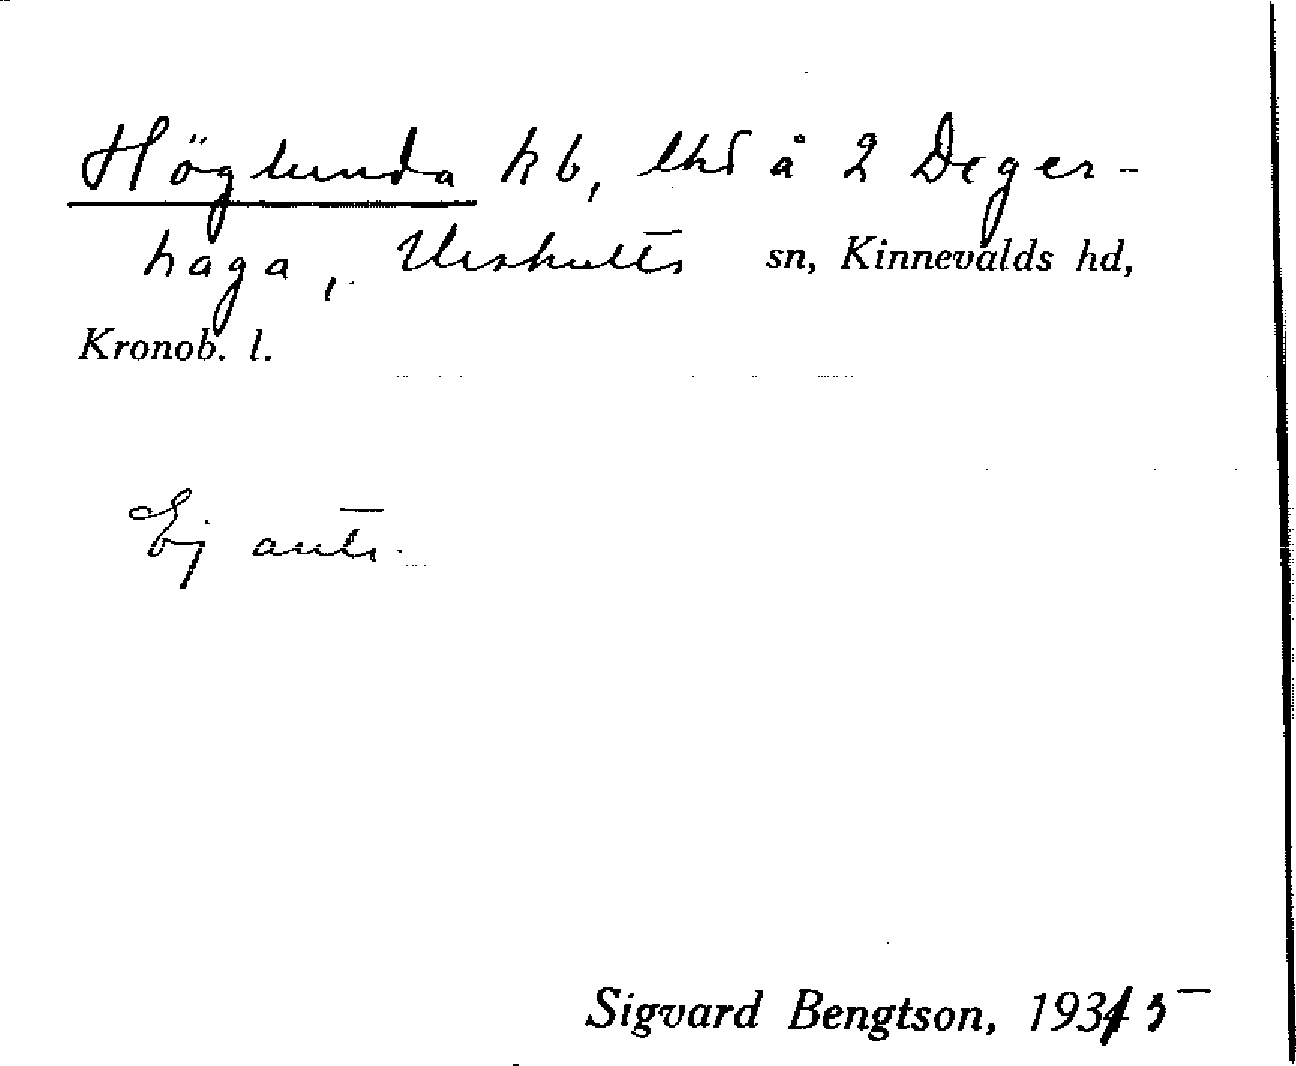 Höglunda kb, lhd å 2 Deger-
haga, Urshults sn, Kinnevalds hd,
Kronob. l.
Ej ants.
Sigvard Bengtson, 1935